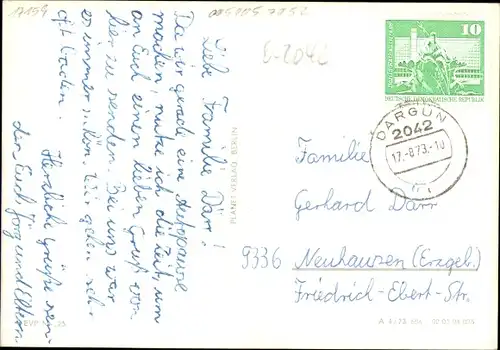 17159
005005 7252
D-2042
10
DEUTSCHE DEMOKRATISCHE REPUBLIK
DARGUN
2042
17.-8.73.-10
Liebe Familie Darr!
Da wir gerade eine Autopause
machen, nutze ich die Zeit, um
an Euch einen lieben Gruß von
hier zu senden. Bei uns war
es immer schön. Wir gehen sehr
oft baden.
Herzliche Grüße sen-
den Euch Jörg und Eltern
PLANET-VERLAG BERLIN
Familie
Gerhard Darr
9336 Neuhausen (Erzgeb.)
Friedrich-Ebert-Str.